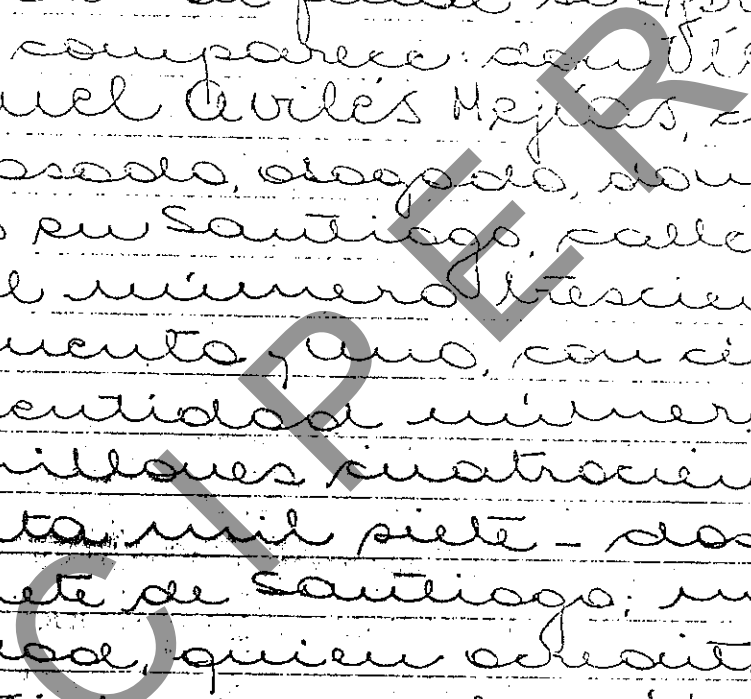 comparece: don Ví
uel Avilés Mejías, c
asado, abogado, dom
o en Santiago, calle
l número trescien
uenta y uno, con cé
entidad númer
illones cuatrocien
ta mil siete - dos
ete de Santiago; m
dad, quien acredit
CIPER